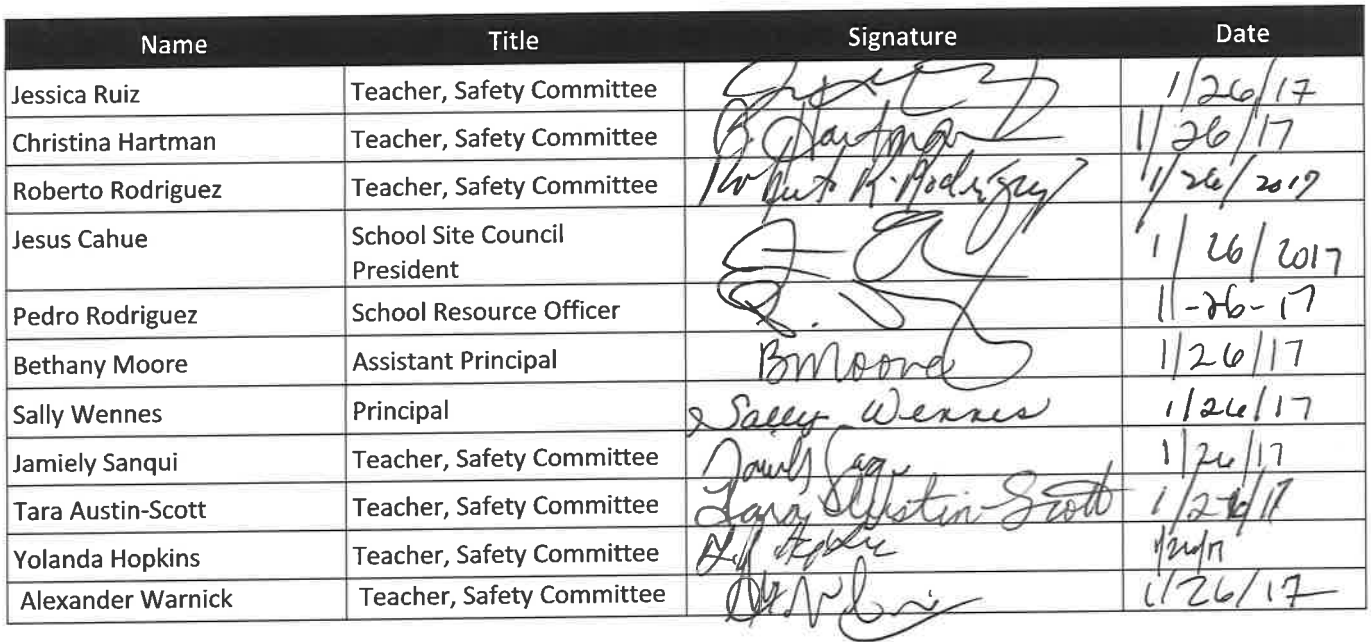 Name Title Signature Date
Jessica Ruiz Teacher, Safety Committee 1/26/17
Christina Hartman Teacher, Safety Committee Hartman 1/26/17
Roberto Rodriguez Teacher, Safety Committee R. Rodriguez 1/26/2017
Jesus Cahue School Site Council
President 1/26/2017
Pedro Rodriguez School Resource Officer 1-26-17
Bethany Moore Assistant Principal BMoore 1/26/17
Sally Wennes Principal Sally Wennes 1/26/17
Jamiely Sanqui Teacher, Safety Committee 1/26/17
Tara Austin-Scott Teacher, Safety Committee Tara Austin-Scott 1/26/17
Yolanda Hopkins Teacher, Safety Committee 1/26/17
Alexander Warnick Teacher, Safety Committee 1/26/17